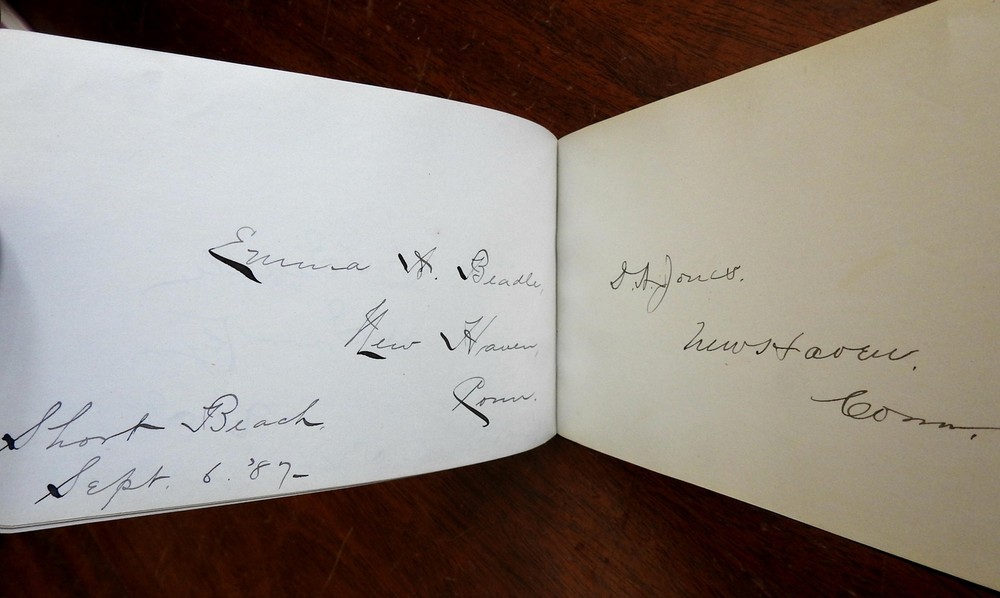 Emma A. Beadle,
New Haven,
Conn.
Short Beach,
Sept. 6. '87—
D. A. Jones.
New Haven.
Conn.